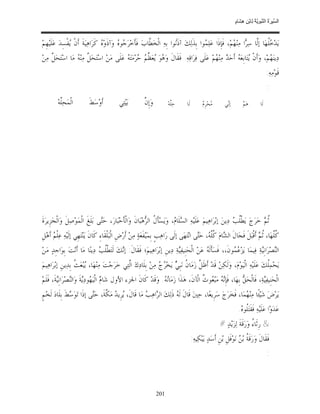 السّيرَة النّبَويّة لابْن هشام
يَدْخُلُهَا إلّا سِرّا مِنْهُمْ، فَإِذَا عَلِمُوا بِذَلِكَ آذَنُوا بِهِ الْخَطّابَ فَأَخْرَجُوهُ وَآذَوْهُ كَرَاهِيَةَ أَنْ يُفْسِدَ عَلَيْهِمْ
دِينَهُمْ، وَأَنْ يُتَابِعَهُ أَحَدٌ مِنْهُمْ عَلَى فِرَاقِهِ. فَقَالَ وَهُوَ يُعَظّمُ حُرْمَتَهُ عَلَى مَنْ اسْتَحَلّ مِنْهُ مَا اسْتَحَلّ مِنْ
قَوْمِهِ
وَإِنّ بَيْتِي أَوْسَطَ الْمَحِلّهْ
ثُمّ خَرَجَ يَطْلُبُ دِينَ إبْرَاهِيمَ عَلَيْهِ السّلَامُ، وَيَسْأَلُ الرّهْبَانَ وَالْأَحْبَارَ، حَتّى بَلَغَ الْمَوْصِلَ وَالْجَزِيرَةَ
كُلّهَا، ثُمّ أَقْبَلَ فَجَالَ الشّامَ كُلّهُ، حَتّى انْتَهَى إلَى رَاهِبٍ بِمَيْفَعَةٍ مِنْ أَرْضِ الْبَلْقَاءِ، كَانَ يَنْتَهِي إلَيْهِ عِلْمُ أَهْلِ
النّصْرَانِيّةِ فِيمَا يَزْعُمُونَ، فَسَأَلَهُ عَنْ الْحَنِيفِيّةِ دِينِ إبْرَاهِيمَ؛ فَقَالَ: إنّك لَتَطْلُبُ دِينًا مَا أَنْتَ بِوَاجِدٍ مَنْ
يَحْمِلُكَ عَلَيْهِ الْيَوْمَ، وَلَكِنْ قَدْ أَظَلّ زَمَانُ نَبِيّ يَخْرُجُ مِنْ بِلَادِكَ الّتِي خَرَجْت مِنْهَا، يُبْعَثُ بِدِينِ إبْرَاهِيمَ
الْحَنِيفِيّةِ، فَالْحَقْ بِهَا، فَإِنّهُ مَبْعُوثٌ الْآنَ، هَذَا زَمَانُهُ. وَقَدْ كَانَ الجزء الأول شَامّ الْيَهُودِيّةَ وَالنّصْرَانِيّةَ، فَلَمْ
يَرْضَ شَيْئًا مِنْهُمَا، فَخَرَجَ سَرِيعًا، حِينَ قَالَ لَهُ ذَلِكَ الرّاهِبُ مَا قَالَ، يُرِيدُ مَكّةَ، حَتّى إذَا تَوَسّطَ بِلَادَ لَخْمٍ
عَدَوْا عَلَيْهِ فَقَتَلُوهُ
رِثَاءُ وَرَقَةَ لِزَيْدِ
فَقَالَ وَرَقَةُ بْنُ نَوْفَلِ بْنِ أَسَدٍ يَبْكِيهِ
201